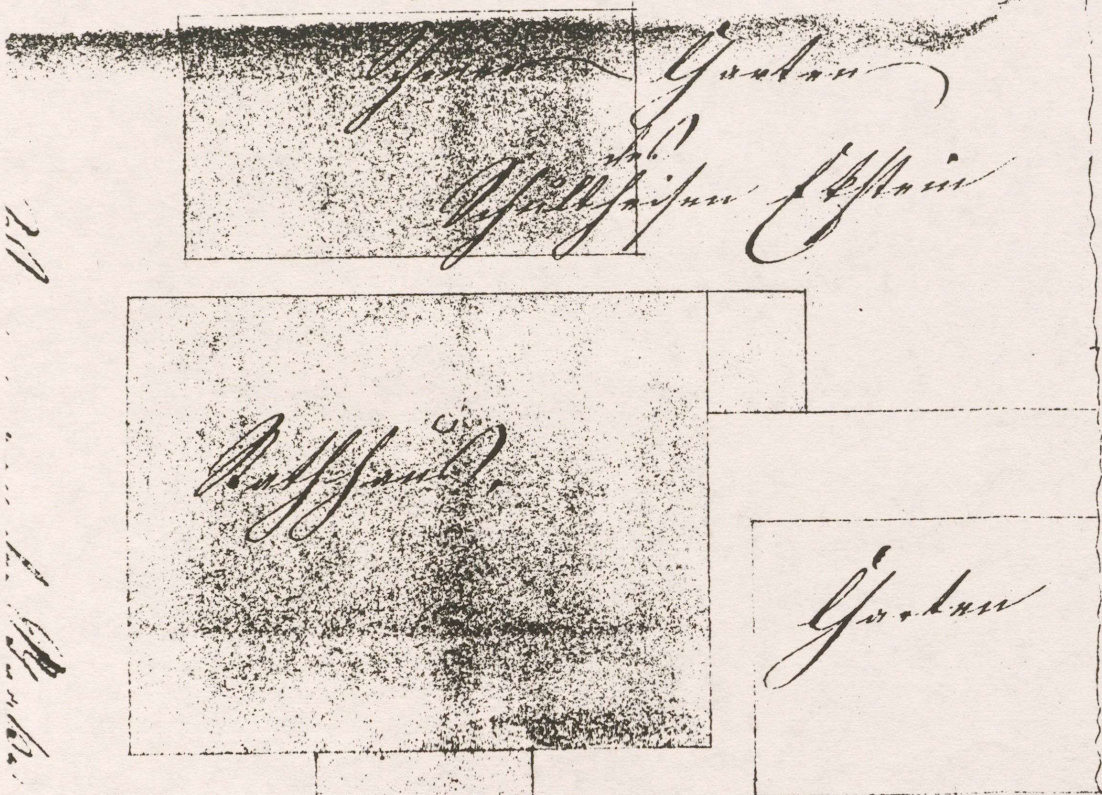 Scheuer Garten
des
Schultheisen Ekstein
Rathhaus.
Garten